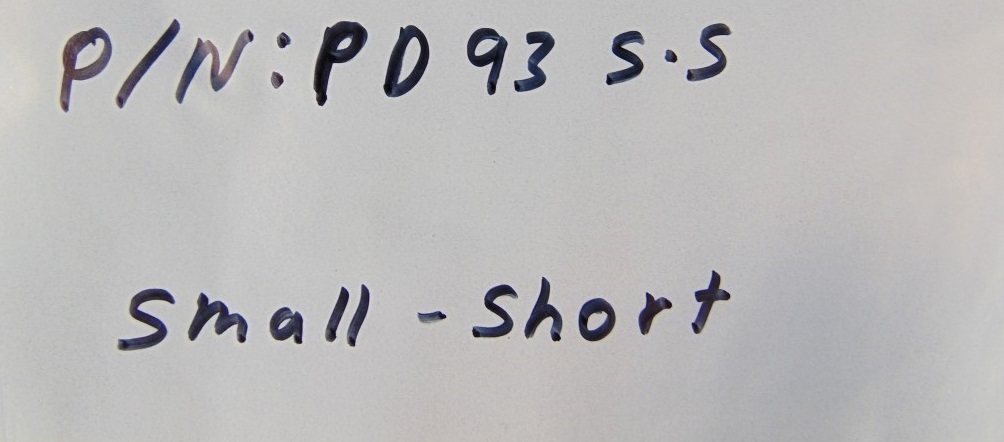 P/N: PD 93 S.S
Small - Short